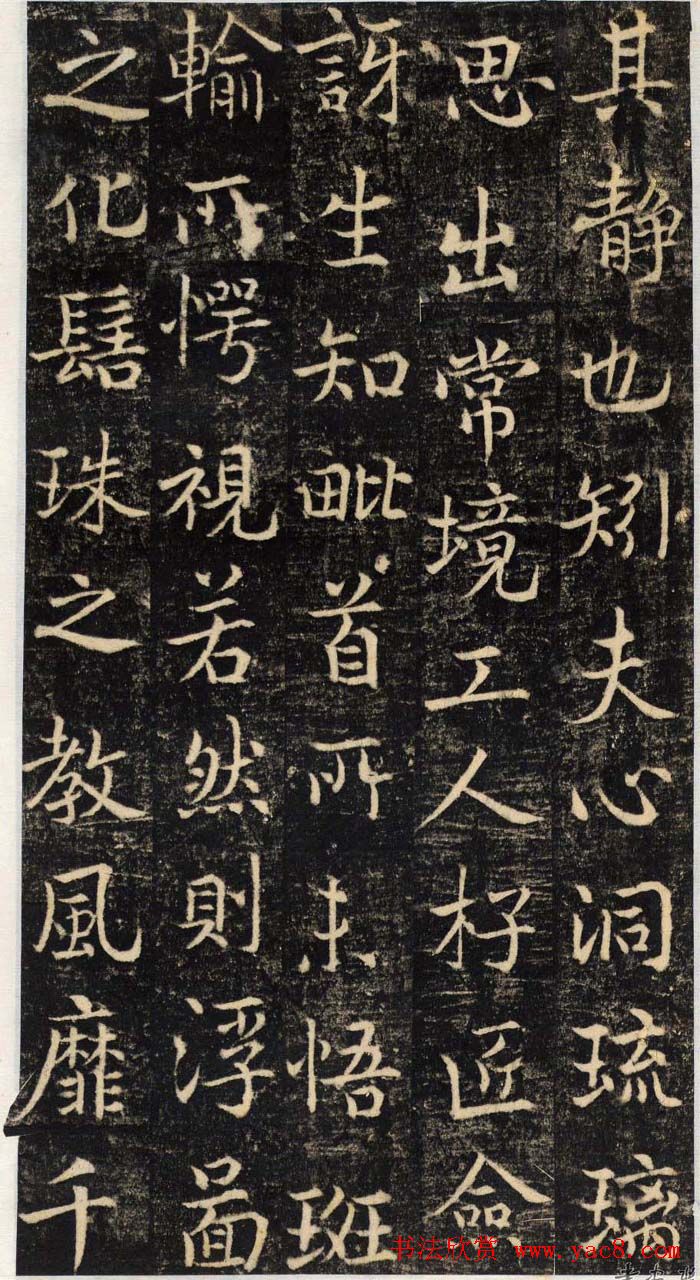 其静也矧夫心洞琉璃
思出常境工人杍匠僉
訝生知毗首所未悟班
輸所愕視若然則浮啚
之化髻珠之教風靡千
书法欣赏 www.yac8.com